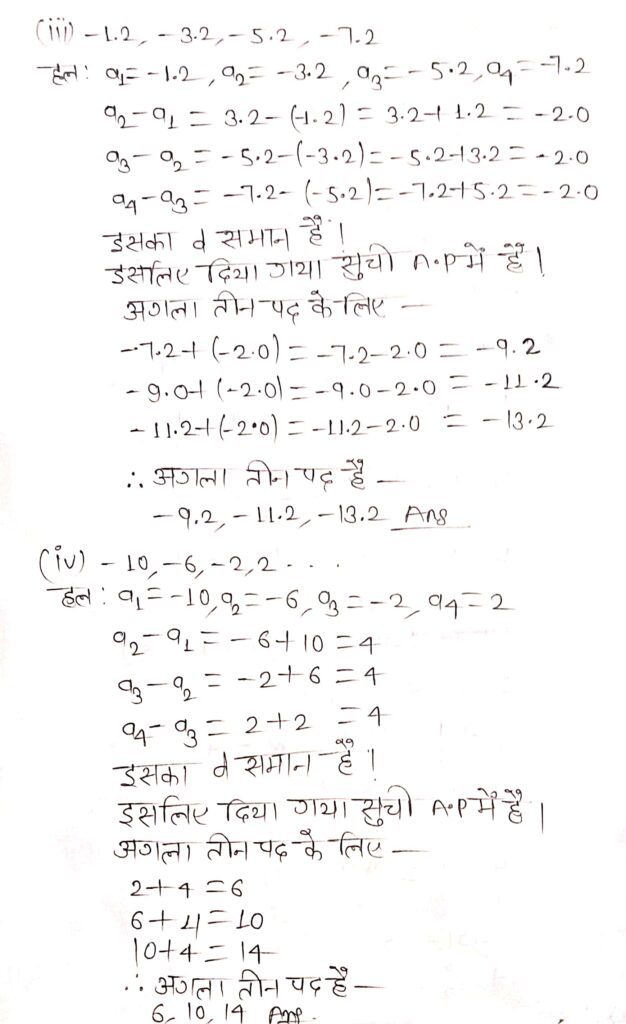 (iii) -1.2, -3.2, -5.2, -7.2
हल: a₁= -1.2, a₂= -3.2, a₃= -5.2, a₄= -7.2
a₂-a₁ = 3.2-(-1.2) = 3.2+1.2 = -2.0
a₃-a₂ = -5.2-(-3.2) = -5.2+3.2 = -2.0
a₄-a₃ = -7.2-(-5.2) = -7.2+5.2 = -2.0
इसका d समान है।
इसलिए दिया गया सुची A.P में है।
अगला तीन पद के लिए —
-7.2+(-2.0) = -7.2-2.0 = -9.2
-9.0+(-2.0) = -9.0-2.0 = -11.2
-11.2+(-2.0) = -11.2-2.0 = -13.2
∴ अगला तीन पद है —
-9.2, -11.2, -13.2 Ans
(iv) -10, -6, -2, 2 . . .
हल: a₁= -10, a₂= -6, a₃= -2, a₄= 2
a₂-a₁ = -6+10 = 4
a₃-a₂ = -2+6 = 4
a₄-a₃ = 2+2 = 4
इसका d समान है।
इसलिए दिया गया सुची A.P में है।
अगला तीन पद के लिए —
2+4 = 6
6+4 = 10
10+4 = 14
∴ अगला तीन पद है —
6, 10, 14 Ans.